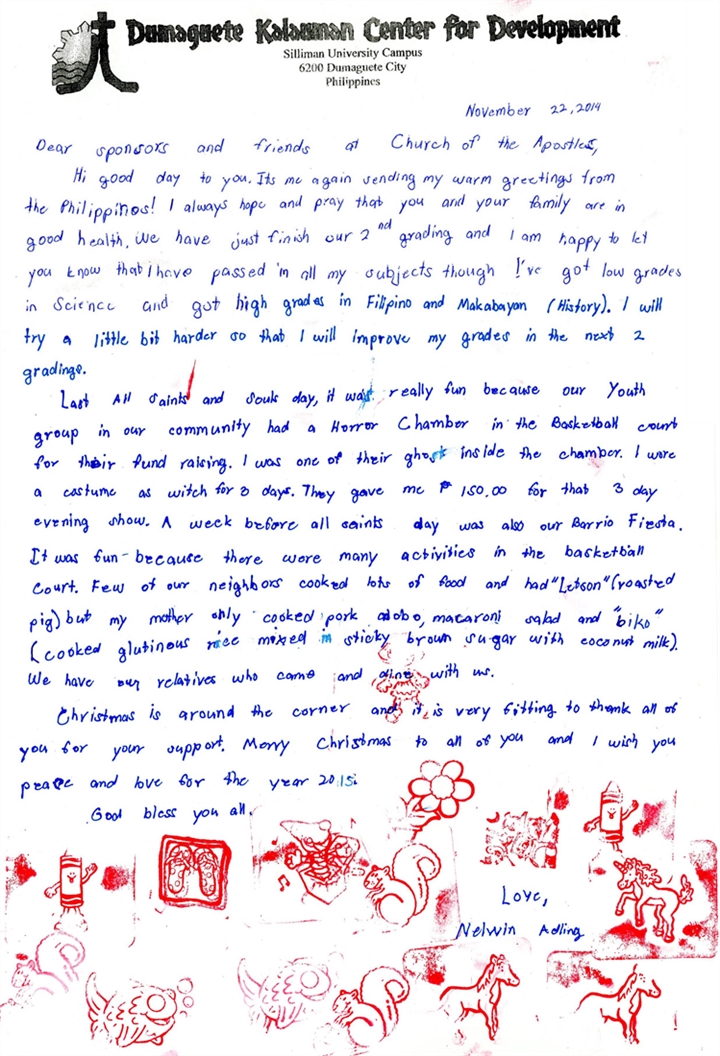 Dumaguete Kalauman Center for Development
Silliman University Campus
6200 Dumaguete City
Philippines
November 22, 2014
Dear sponsors and friends at Church of the Apostles,
Hi good day to you. Its me again sending my warm greetings from
the Philippines! I always hope and pray that you and your family are in
good health. We have just finish our 2nd grading and I am happy to let
you know that I have passed in all my subjects though I've got low grades
in Science and got high grades in Filipino and Makabayan (History). I will
try a little bit harder so that I will improve my grades in the next 2
gradings.
Last All Saints and Souls day, it was really fun because our Youth
group in our community had a Horror Chamber in the Basketball court
for their fund raising. I was one of their ghost inside the chamber. I wore
a costume as witch for 3 days. They gave me ₱ 150.00 for that 3 day
evening show. A week before all saints day was also our Barrio Fiesta.
It was fun because there were many activities in the basketball
court. Few of our neighbors cooked lots of food and had "Letson" (roasted
pig) but my mother only cooked pork adobo, macaroni salad and "biko"
(cooked glutinous rice mixed in sticky brown sugar with coconut milk).
We have our relatives who came and dine with us.
Christmas is around the corner and it is very fitting to thank all of
you for your support. Merry Christmas to all of you and I wish you
peace and love for the year 2015.
God bless you all.
Love,
Nelwin Adling